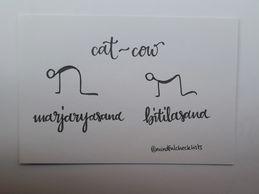 cat~cow
marjaryasana bitilasana
@mindfulchecklists